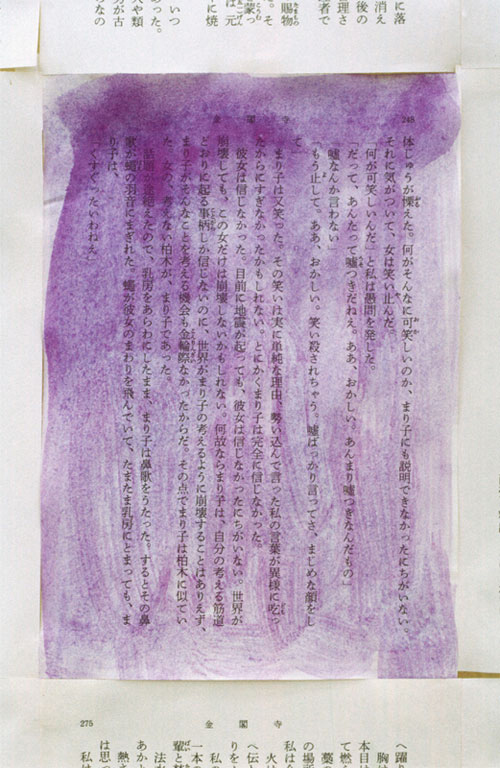 に落
消え
後の
理さ
者で
賜物
。そ
蒙っ
は元
に焼
いつ
あった。
らなの
248
金閣寺
体じゅうが慄えた。何がそんなに可笑しいのか、まり子にも説明できなかったにちがいない。
それに気がついて、女は笑い止んだ。
「何が可笑しいんだ」と私は愚問を発した。
「だって、あんたって嘘つきだねえ。ああ、おかしい。あんまり嘘つきなんだもの」
「嘘なんか言わない」
「もう止して。ああ、おかしい。笑い殺されちゃう。嘘ばっかり言ってさ、まじめた顔をし
て」
まり子は又笑った。その笑いは実に単純な理由、勢い込んで言った私の言葉が異様に吃っ
たからにすぎなかったかもしれない。とにかくまり子は完全に信じなかった。
彼女は信じなかった。目前に地震が起っても、彼女は信じなかったにちがいない。世界が
崩壊しても、この女だけは崩壊しないかもしれない。何故ならまり子は、自分の考える筋道
どおりに起る事柄しか信じないのに、世界がまり子の考えるように崩壊することはありえず、
まり子がそんなことを考える機会も金輪際なかったからだ。その点でまり子は柏木に似てい
た。女の、考えない柏木が、まり子であった。
話題が途絶えたので、乳房をあらわにしたまま、まり子は鼻歌をうたった。するとその鼻
歌が蠅の羽音にまざれた。蠅が彼女のまわりを飛んでいて、たまたま乳房にとまっても、ま
り子は、
「くすぐったいわねえ」
275
金閣寺
へ躍り
胸は
本目は
て燃
藁の
の場所
私は
火は
へ伝
りを
私の
一本の
輩と
あかあ
熱さ
は思っ
私は